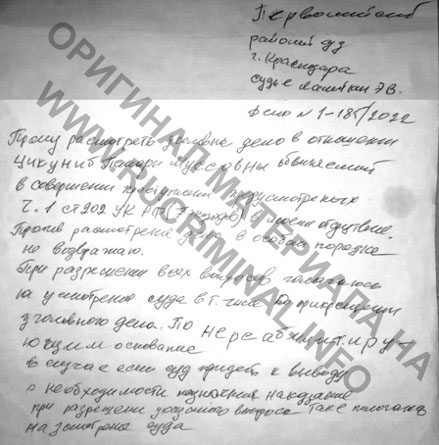 Первомайский
районный суд
г. Краснодара
судье Э.В.
Дело N 1-185/2022
Прошу рассмотреть уголовное дело в отношении
обвиняемой
в совершении преступлений предусмотренных
ч. 1 ст 202 УК РФ в моем отсутствие
Против рассмотрения дела в особом порядке
не возражаю.
При разрешении всех вопросов полагаюсь
на усмотрение суда в т. числе по прекращении
уголовного дела. По нереабилитиру-
ющим основание
в случае если суд придет к выводу
о необходимости назначения наказания
при разрешение указанного вопроса также полагаюсь
на усмотрение суда
ОРИГИНАЛ МАТЕРИАЛА НА
WWW.RUCRIMINAL.INFO